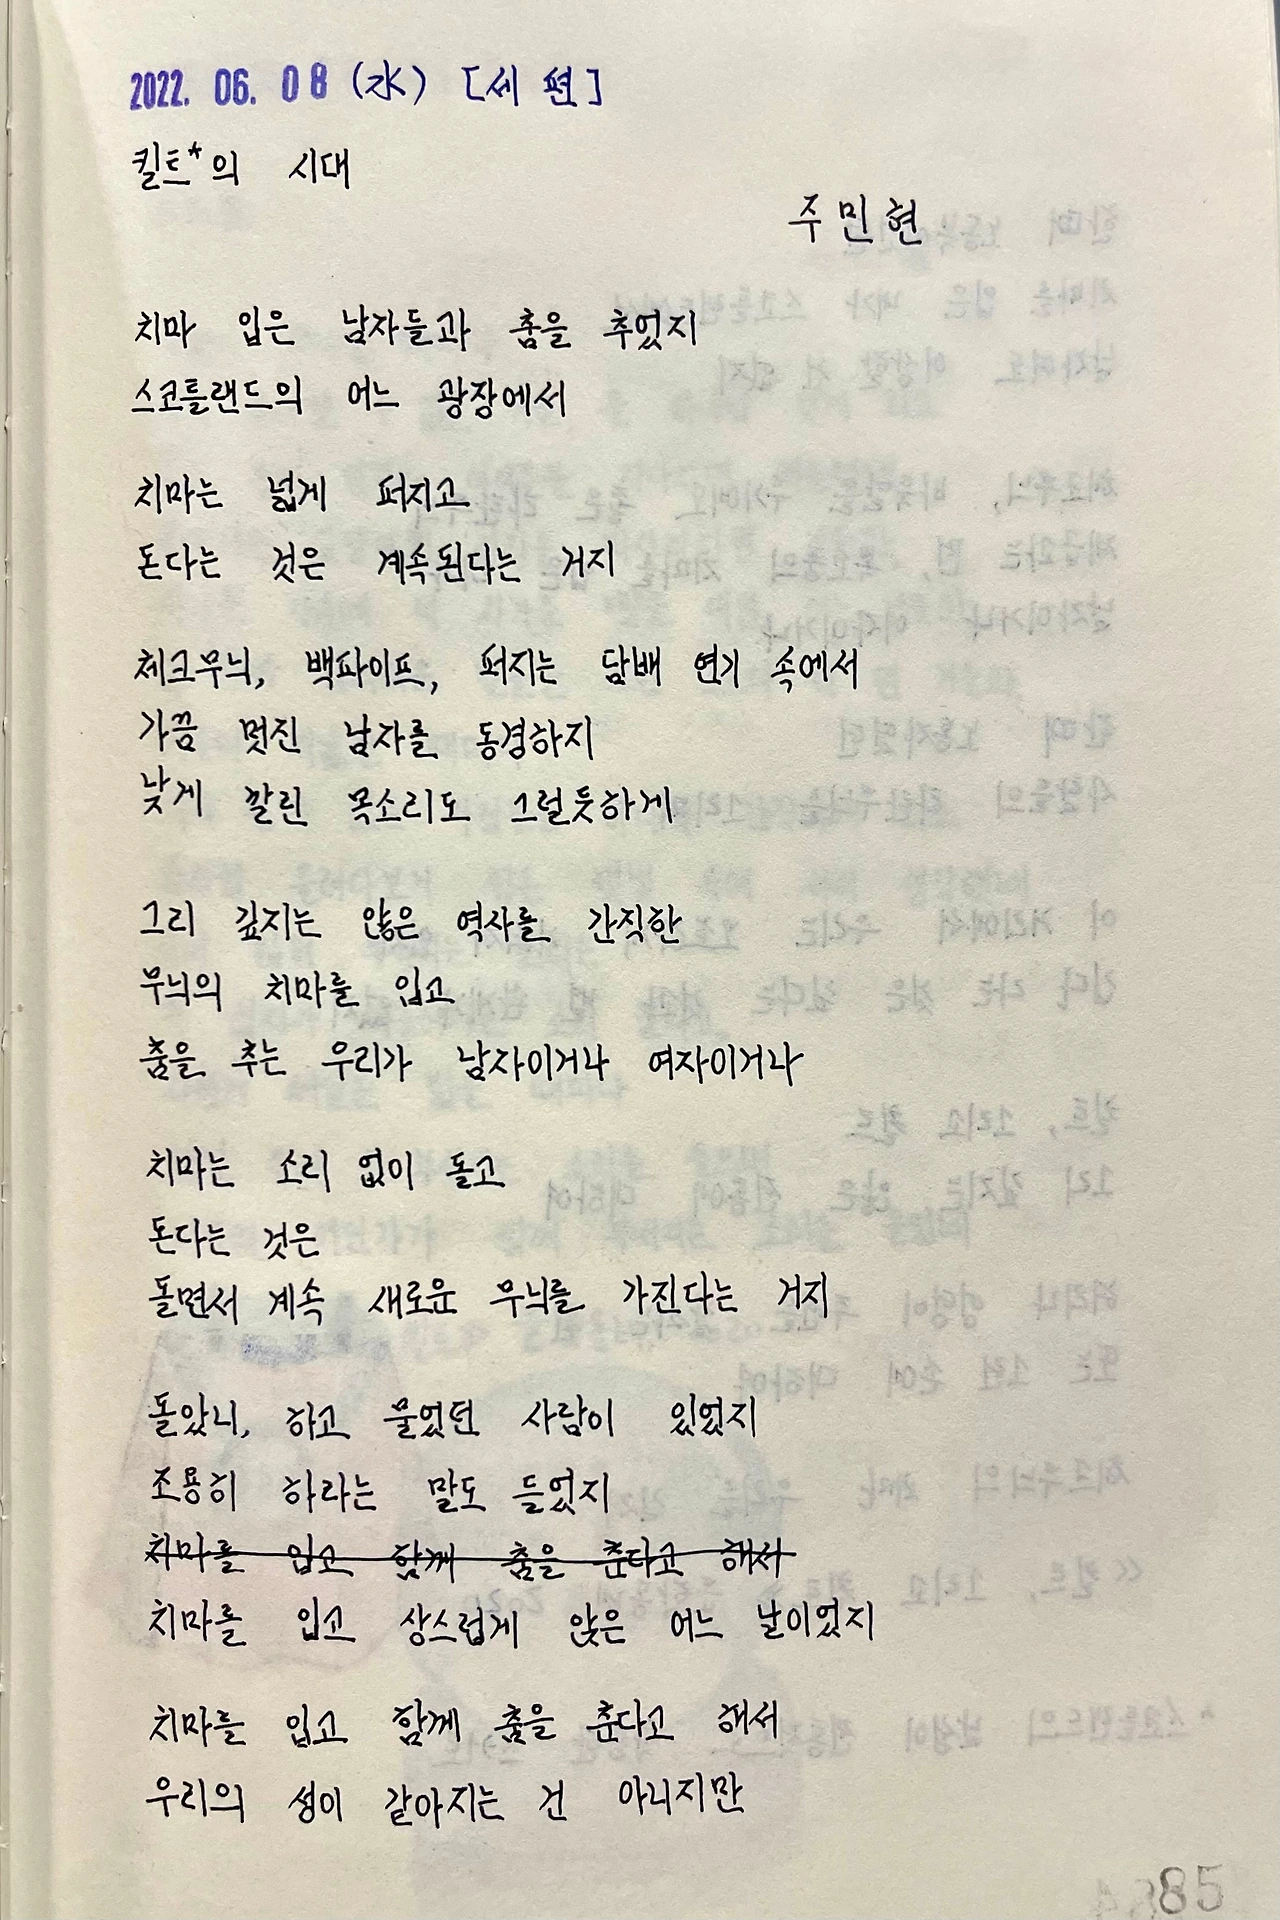 2022. 06. 08 (水) [세 편]
킬트*의 시대
주민현
치마 입은 남자들과 춤을 추었지
스코틀랜드의 어느 광장에서
치마는 넓게 퍼지고
돈다는 것은 계속된다는 거지
체크무늬, 백파이프, 퍼지는 담배 연기 속에서
가끔 멋진 남자를 동경하지
낮게 깔린 목소리도 그럴듯하게
그리 깊지는 않은 역사를 간직한
무늬의 치마를 입고
춤을 추는 우리가 남자이거나 여자이거나
치마는 소리 없이 돌고
돈다는 것은
돌면서 계속 새로운 무늬를 가진다는 거지
돌았니, 하고 물었던 사람이 있었지
조용히 하라는 말도 들었지
치마를 입고 함께 춤을 춘다고 해서
치마를 입고 상스럽게 앉은 어느 날이었지
치마를 입고 함께 춤을 춘다고 해서
우리의 성이 같아지는 건 아니지만
85